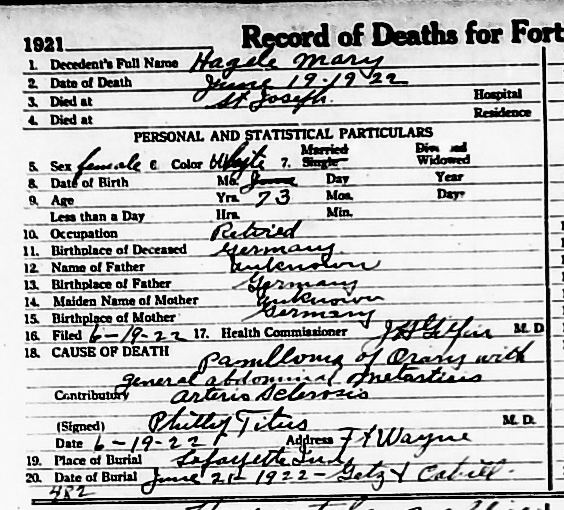 1921 Record of Deaths for Fort
1. Decedent's Full Name Hagele Mary
2. Date of Death June 19-1922
3. Died at St Joseph. Hospital
4. Died at Residence
PERSONAL AND STATISTICAL PARTICULARS
5. Sex female 6. Color Whyte 7. Married Single Widowed
8. Date of Birth Mo. June Day Year
9. Age Yrs. 73 Mos. Days
Less than a Day Hrs. Min.
10. Occupation Retired
11. Birthplace of Deceased Germany
12. Name of Father unknown
13. Birthplace of Father Germany
14. Maiden Name of Mother unknown
15. Birthplace of Mother Germany
16. Filed 6-19-22 17. Health Commissioner M. D
18. CAUSE OF DEATH of Ovary with
general abdominal metastisis
Contributory arterio Sclerosis
(Signed) Titus M. D.
Date 6-19-22 Address Ft Wayne
19. Place of Burial Lafayette
20. Date of Burial June 21-1922 - Getz &
482